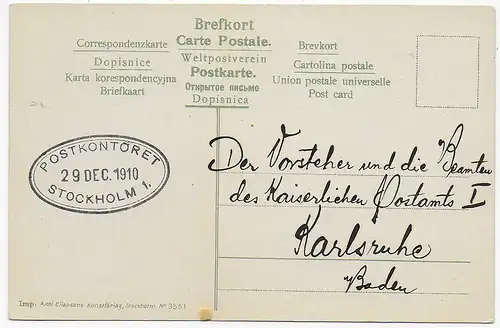 Brefkort
Correspondenzkarte Carte Postale. Brevkort
Dopisnice Weltpostverein Cartolina postale
Karta korespondencyjna Postkarte. Union postale universelle
Briefkaart Открытое письмо Post card
Dopisnica
POSTKONTORET
29 DEC. 1910
STOCKHOLM 1.
Der Vorsteher und die Beamten
des Kaiserlichen Postamts I
Karlsruhe
Baden
Imp. Axel Eliassons Konstförlag, Stockholm. Nº 3551